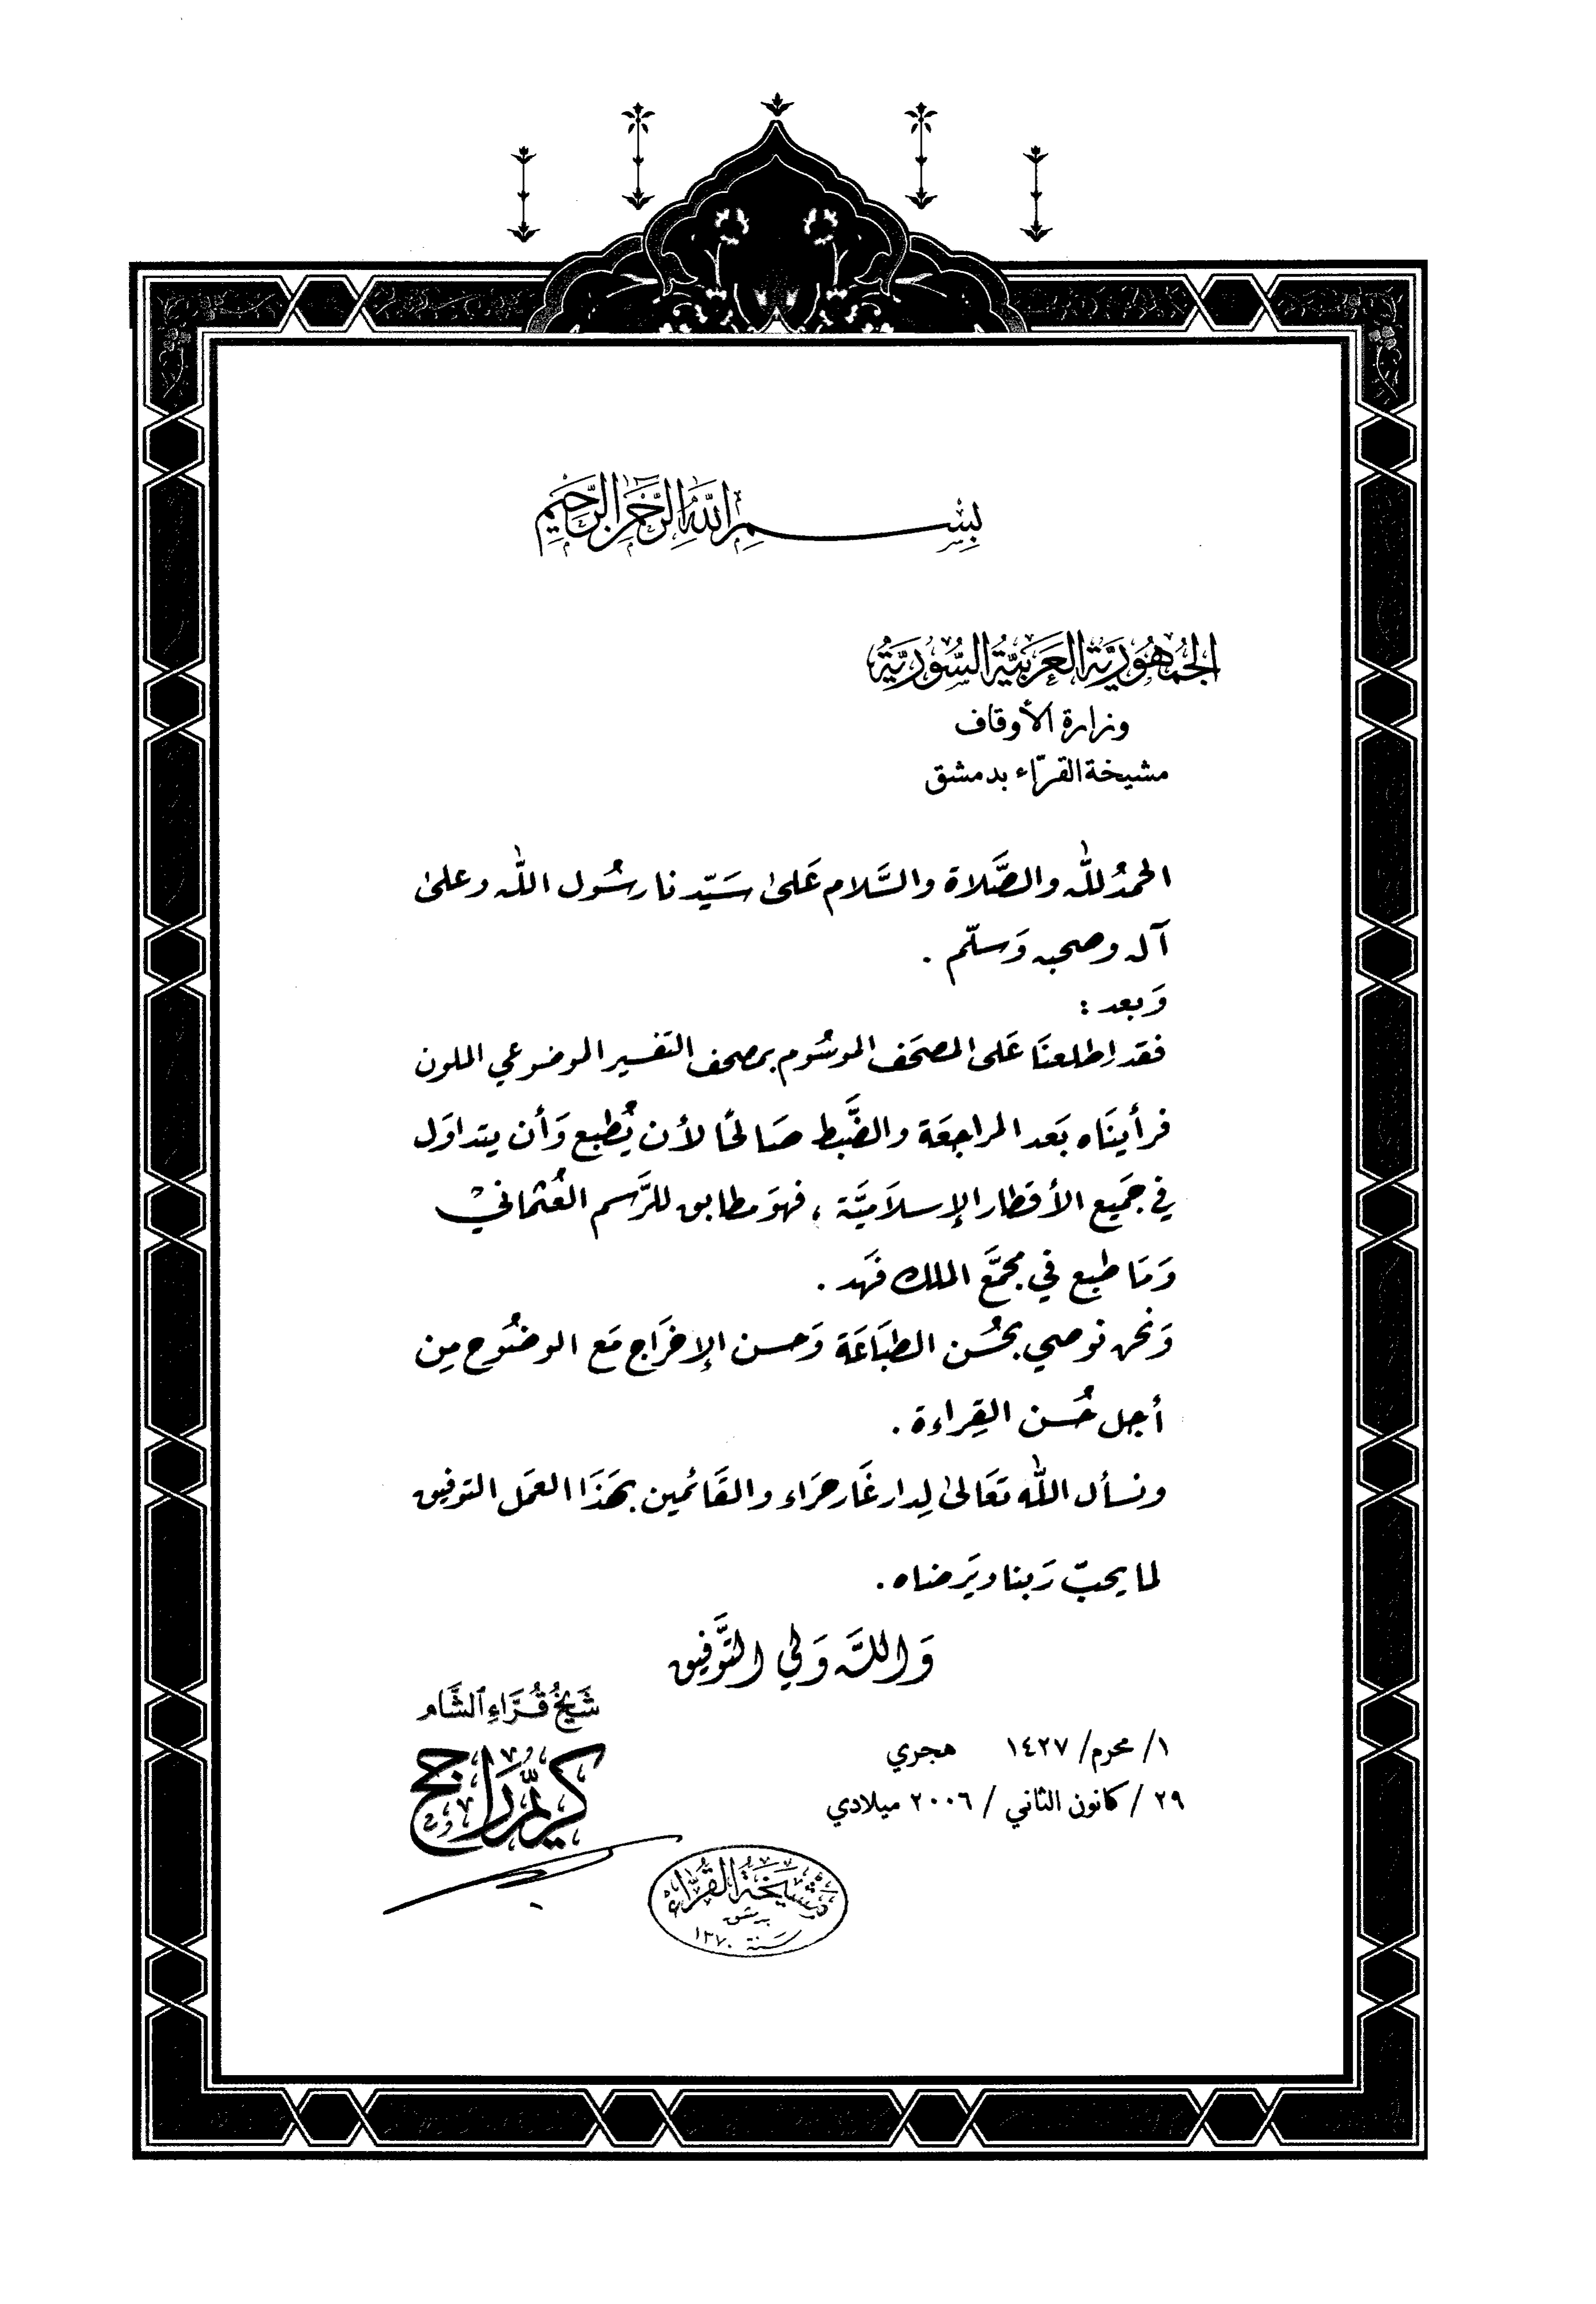 بِسْمِ اللَّهِ الرَّحْمَنِ الرَّحِيمِ
الجُمْهُورِيَّة العَرَبِيَّة السُّورِيَّة
وزارة الأوقاف
مشيخة القرّاء بدمشق
الحمدُ للّٰه والصَّلاة والسَّلام عَلىٰ سَيّدنا رسُول اللّٰه وعلىٰ
آله وصحبه وَسلّم .
وَبعد :
فقد اطلعنَا عَلى المصحَف الموسُوم بمصحف التفسير الموضوعي الملون
فرأينَاه بَعد المراجعَة والضَّبط صَالحًا لأن يُطبع وَأن يتداوَل
في جَميع الأقطار الإسلاَميَّة ، فهوَ مطابق للرَّسم العُثماني
وَمَا طبع في مجمَّع الملك فهَد .
وَنحن نوصي بحُسن الطبَاعَة وَحسن الإخرَاج مَع الوضُوح مِن
أجل حُسن القِراءة .
ونسأل اللّٰه تعَالىٰ لِدار غَار حرَاء والقَائمين بهَذَا العمَل التوفيق
لما يحبّ رَبنا ويَرضاه .
وَاللَّه وَلي التَّوفيق
شَيْخُ قُرَّاءِ الشَّام
كريّم راجح
١/ محرم/ ١٤٢٧ هجري
٢٩ / كانون الثاني / ٢٠٠٦ ميلادي
مَشيَخَة القُرَّاء
بدمشق
سنة ١٣٧٠